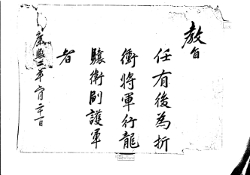 教旨
任有後為折
衝將軍行龍
驤衛副護軍
者
康熙 年 月二十 日